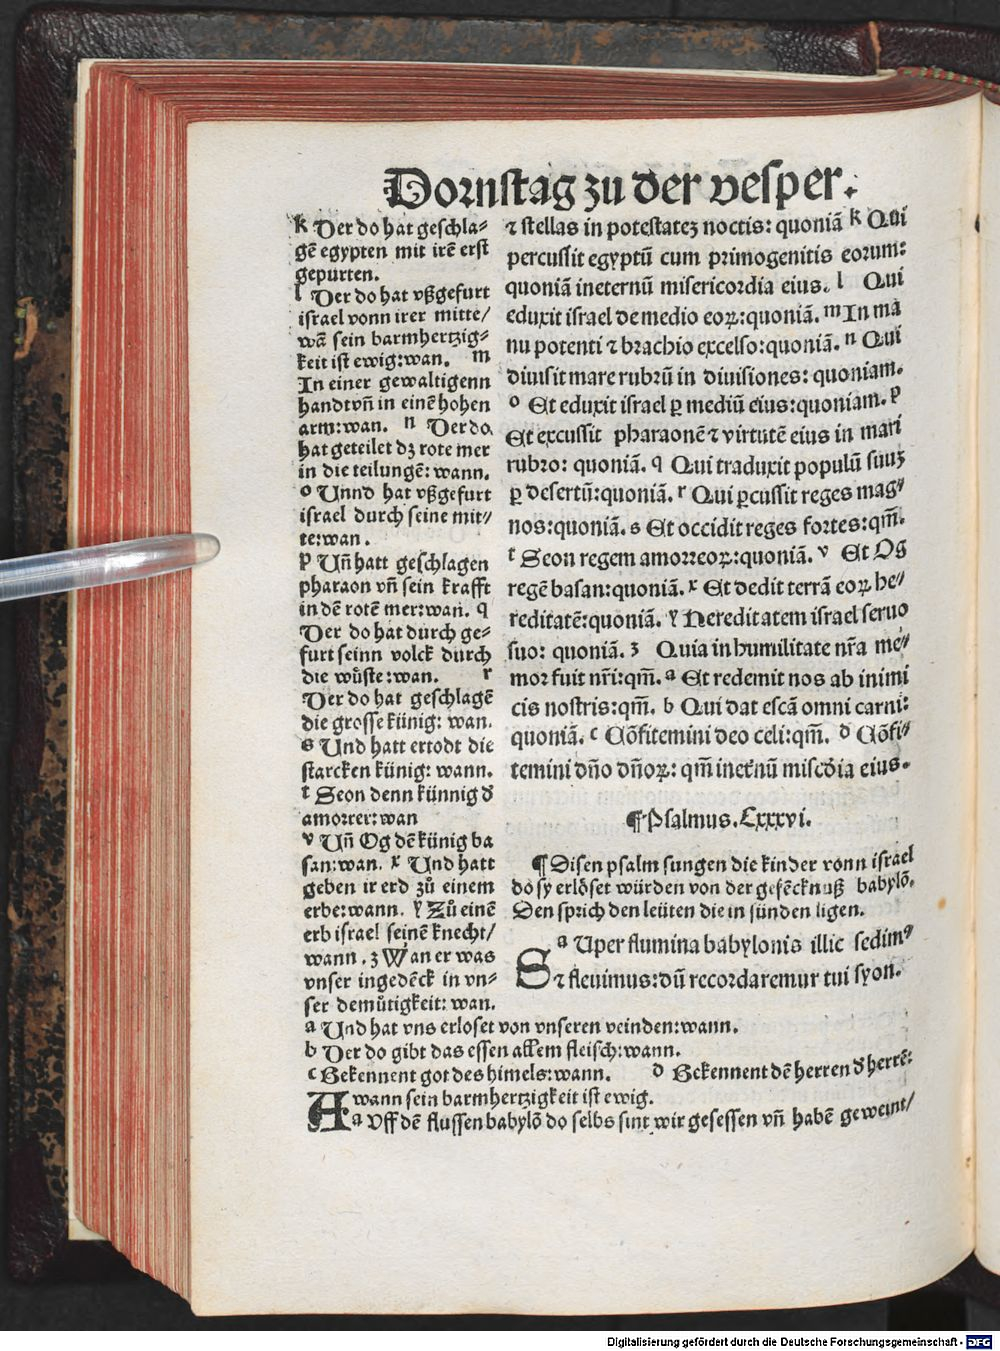 Dornstag zu der vesper.
k Der do hat geschla⸗
gē egypten mit irē erst
gepurten.
l Der do hat vßgefurt
israel vonn irer mitte/
wā sein barmhertzig⸗
keit ist ewig:wan. m
In einer gewaltigenn
handt vn̄ in einē hohen
arm:wan. n Der do
hat geteilet dz rote mer
in die teilungē: wann.
o Unnd hat vßgefurt
israel durch seine mit⸗
te:wan.
p Un̄ hatt geschlagen
pharaon vn̄ sein krafft
in dē rotē mer:wan. q
Der do hat durch ge⸗
furt seinn volck durch
die wůste:wan. r
Der do hat geschlagē
die grosse künig: wan.
s Und hatt ertodt die
starcken künig: wann.
t Seon denn künnig d̄
amorrer:wan
v Un̄ Og dē künig ba
san:wan. x Und hatt
geben ir erd zů einem
erbe:wann. y Zů einē
erb israel seinē knecht/
wann. z Wan er was
vnser ingedēck in vn⸗
ser demůtigkeit: wan.
⁊ stellas in potestatez noctis: quoniā k Qui
percussit egyptū cum primogenitis eorum:
quoniā ineternū misericordia eius. l Qui
eduxit israel de medio eoꝝ:quoniā. m In ma
nu potenti ⁊ brachio excelso:quoniā. n Qui
diuisit mare rubrū in diuisiones: quoniam.
o Et eduxit israel ꝑ mediū eius:quoniam. p
Et excussit pharaonē ⁊ virtutē eius in mari
rubro: quoniā. q Qui traduxit populū suuz
ꝑ desertū:quoniā. r Qui ꝑcussit reges mag⸗
nos:quoniā. s Et occidit reges fortes:qm̄.
t Seon regem amorreoꝝ:quoniā. v Et Og
regē basan:quoniā. x Et dedit terrā eoꝝ he⸗
reditatē:quoniā. y Hereditatem israel seruo
suo: quoniā. z Quia in humilitate nr̄a me⸗
mor fuit nr̄i:qm̄. a Et redemit nos ab inimi
cis nostris:qm̄. b Qui dat escā omni carni:
quoniā. c Cōfitemini deo celi:qm̄. d Cōfi⸗
temini dn̄o dn̄oꝝ: qm̄ inet̄nū misc̄dia eius.
¶ Psalmus. Lxxxvi.
¶ Disen psalm sungen die kinder vonn israel
do sy erlöset würden von der gefēcknuß babylō.
Den sprich den leüten die in sünden ligen.
S a Uper flumina babylonis illic sedimꝰ
⁊ fleuimus:dū recordaremur tui syon.
a Und hat vns erloset von vnseren veinden:wann.
b Der do gibt das essen allem fleisch:wann.
c Bekennent got des himels:wann. d Bekennent dē herren d̄ herrē:
wann sein barmhertzigkeit ist ewig.
A a Vff dē flussen babylō do selbs sint wir gesessen vn̄ habē geweint/
Digitalisierung gefördert durch die Deutsche Forschungsgemeinschaft - DFG